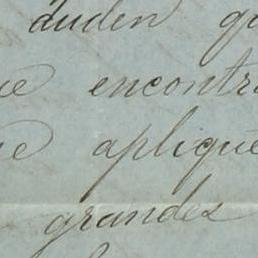 duden qu
ue encontr
ue aplique
grandes